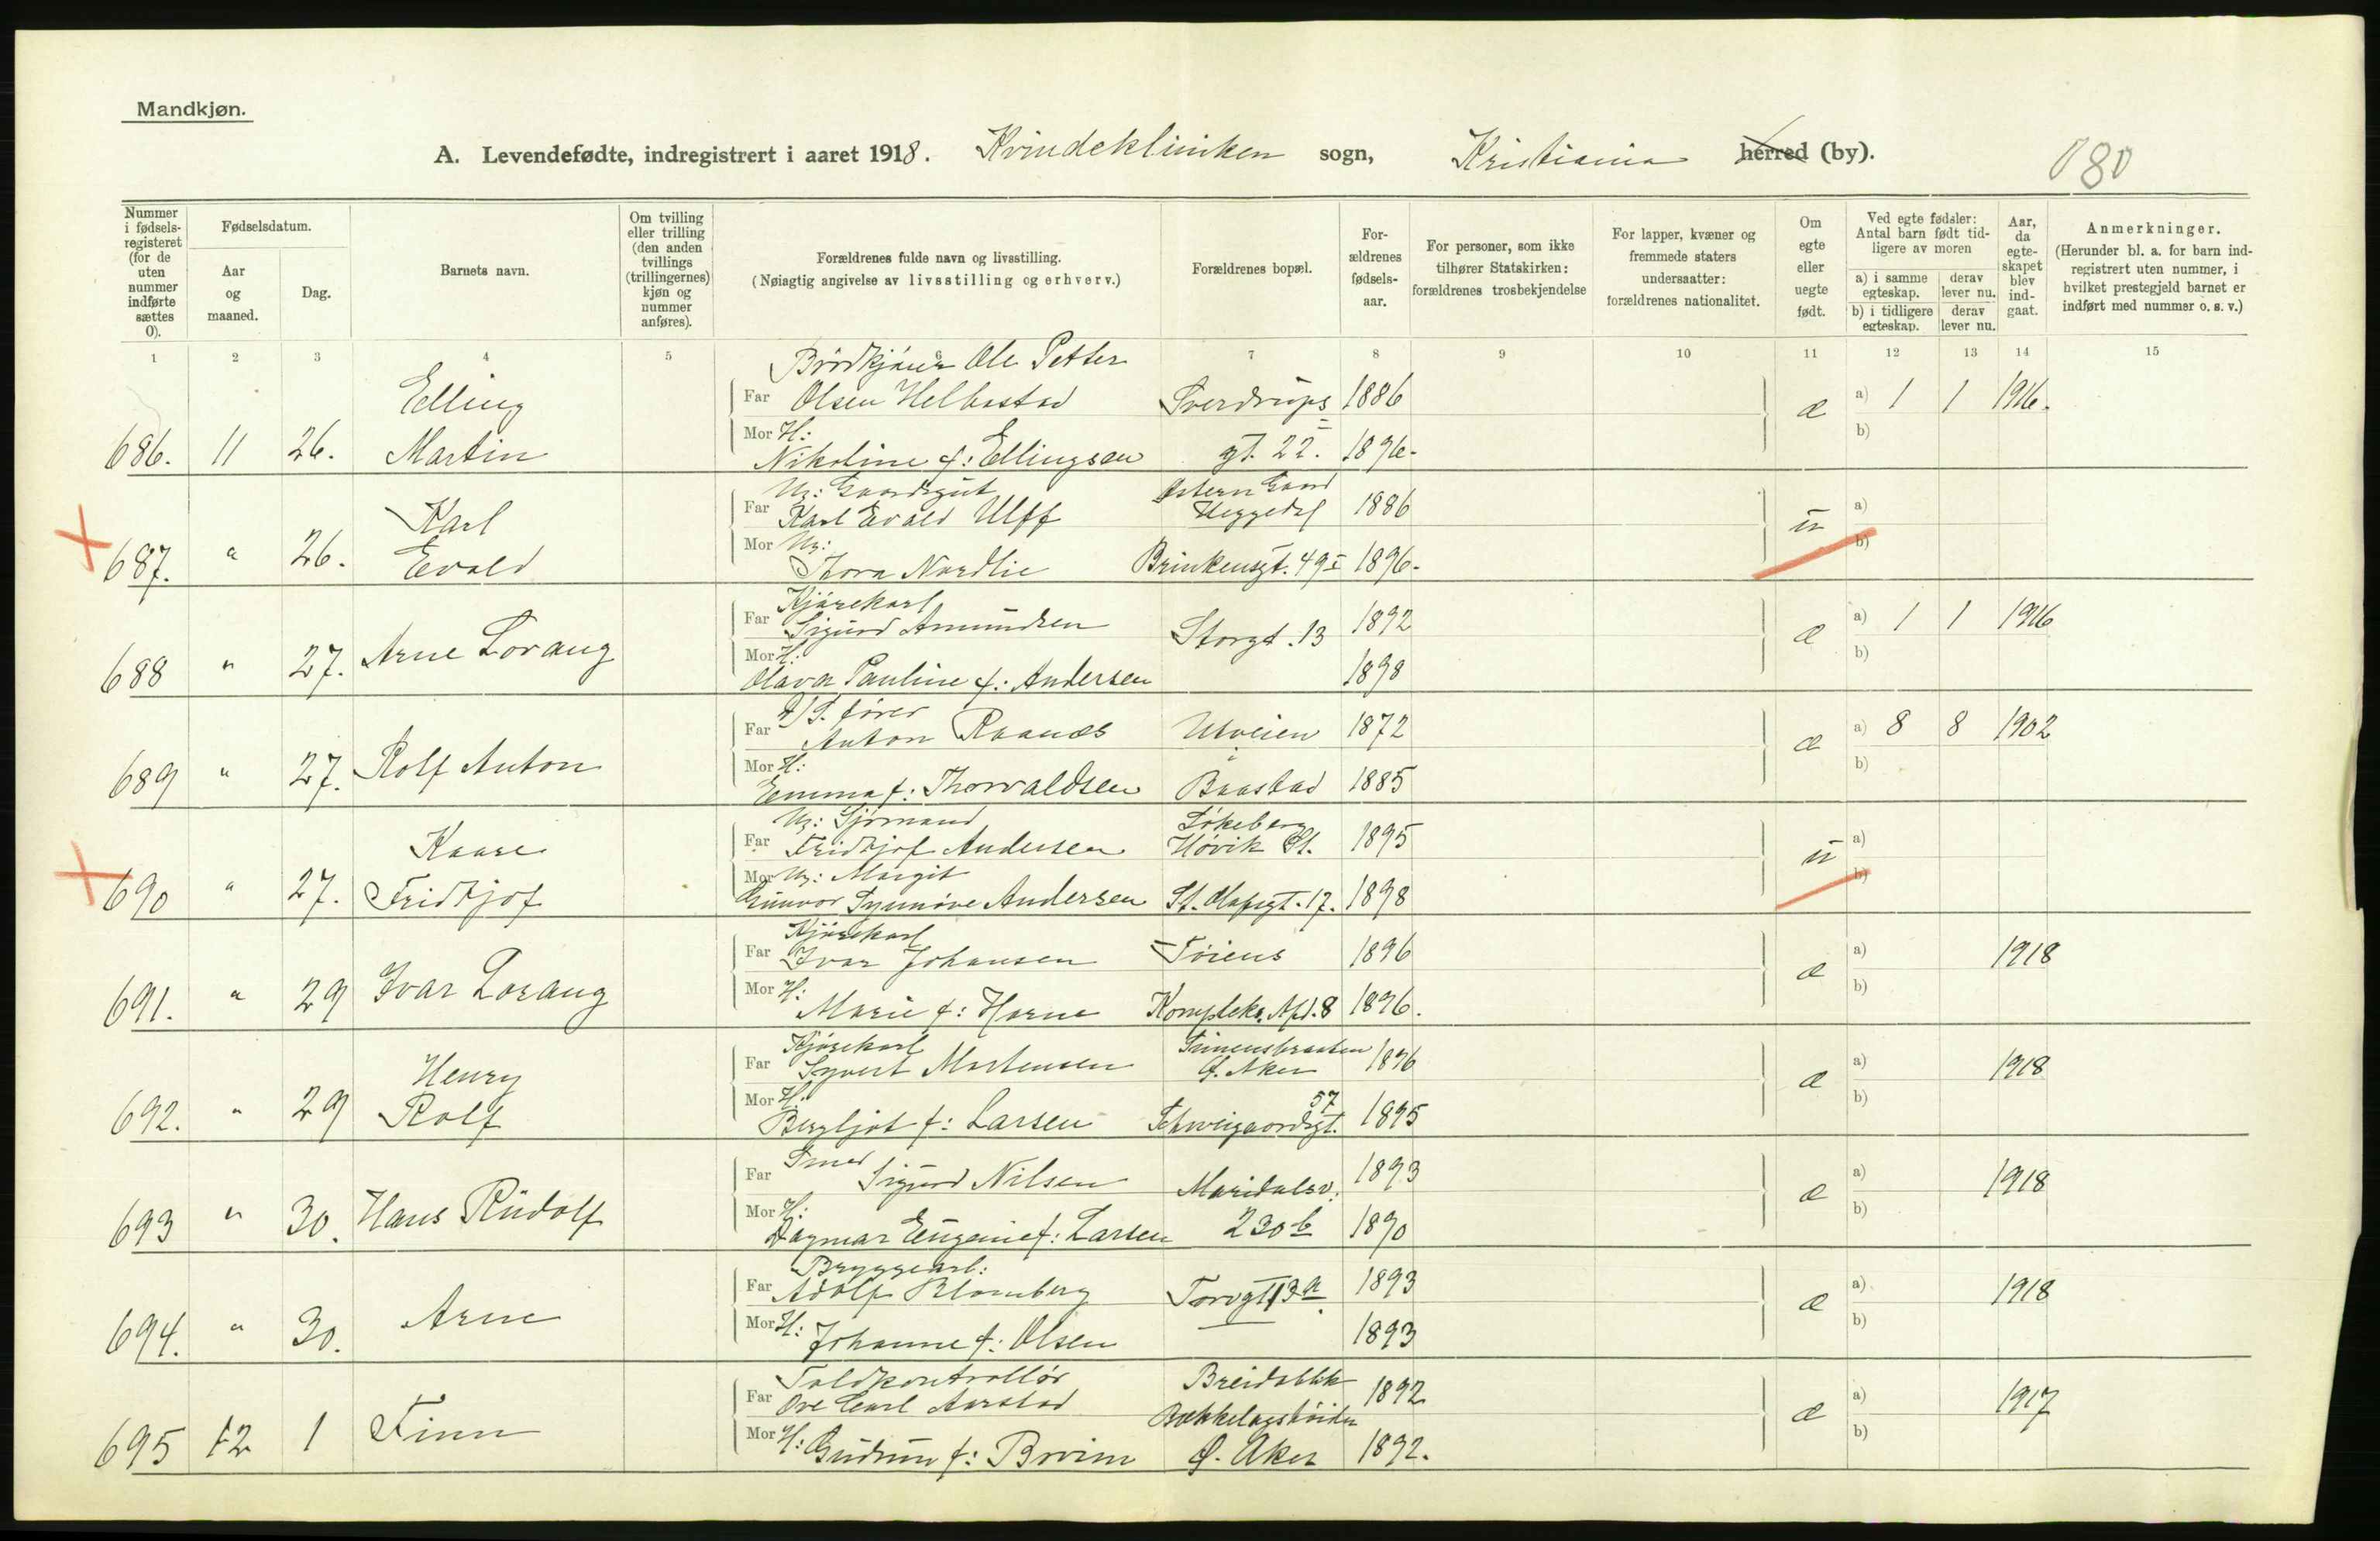 Mandkjøn.
A. Levendefødte, indregistrert i aaret 1918. Kvindeklinken sogn, Kristiania herred (by). 080
Nummer i fødsels-registeret (for de uten nummer indførte sættes 0).
Fødselsdatum.
Aar og maaned.
Dag.
Barnets navn.
Om tvilling eller trilling (den anden tvillings (trillingernes) kjøn og nummer anføres).
Forældrenes fulde navn og livsstilling.
(Nøiagtig angivelse av livsstilling og erhverv.)
Forældrenes bopæl.
For-ældrenes fødsels-aar.
For personer, som ikke tilhører Statskirken: forældrenes trosbekjendelse
For lapper, kvæner og fremmede staters undersaatter: forældrenes nationalitet.
Om egte eller uegte født.
Ved egte fødsler: Antal barn født tid-ligere av moren
a) i samme egteskap. derav lever nu.
b) i tidligere egteskap. derav lever nu.
Aar, da egte-skapet blev ind-gaat.
Anmerkninger.
(Herunder bl. a. for barn ind-registrert uten nummer, i hvilket prestegjeld barnet er indført med nummer o. s. v.)
1 2 3 4 5 6 7 8 9 10 11 12 13 14 15
Brødkjører Ole Petter
Elling Far Olsen Helbostad Sverdrups 1886 æ a) 1 1 1916.
686. 11 26. Martin Mor H: Nikoline f: Ellingsen gt. 22. 1896. b)
U: Gaardsgut
Karl Far Karl Evald Ulff Heggedal 1886 u a)
687. " 26. Evald Mor U: Thora Nordlie Brinkensgt. 49 I 1896. b)
Kjørekarl
Far Sigurd Amundsen Storgt. 13 1892 æ a) 1 1 1916
688 " 27. Arne Lorang Mor H: Olava Pauline f: Andersen 1898 b)
D/S. fører
Far Anton Raanæs Utveien 1872 æ a) 8 8 1902
689 " 27. Rolf Anton Mor H: Emma f: Thorvaldsen Baastad 1885 b)
U: Sjømand
Kaare Far Fridtjof Andersen Høvik St. 1895 u a)
Mor U: Margit
690 " 27. Fridtjof Gunvor Synnøve Andersen St. Olafsgt. 17. 1898 b)
Kjørekarl
Far Ivar Johansen Tøiens 1896 æ a) 1918
691. " 29 Ivar Lorang Mor H: Marie f: Horne Kompleks. Afd. 8 1896. b)
Kjørekarl
Henry Far Syvert Mortensen Ø. Aker 1896 æ a) 1918
692. " 29 Rolf Mor H: Bergljot f: Larsen Schweigaardsgt. 57 1895 b)
Smed
Far Sigurd Nilsen Maridalsv. 1893 æ a) 1918
693 " 30. Hans Rudolf Mor H: Dagmar Eugenie f: Larsen 230 b 1890 b)
Bryggearb:
Far Adolf Blomberg Torvgt. 13 a 1893 æ a) 1918
694. " 30. Arne Mor H: Johanne f: Olsen 1893 b)
Toldkontrollør Breidablik
Far Ove Carl Aarstad Bækkelagshøiden 1892 æ a) 1917
695 12 1 Finn Mor H: Gudrun f: Brvim Ø. Aker 1892. b)